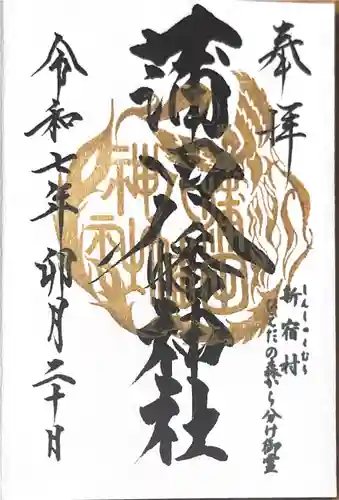 奉拝
新宿村
しんしゅくむら
はんだの森から分け御霊
蒲八幡神社
令和七年卯月二十日